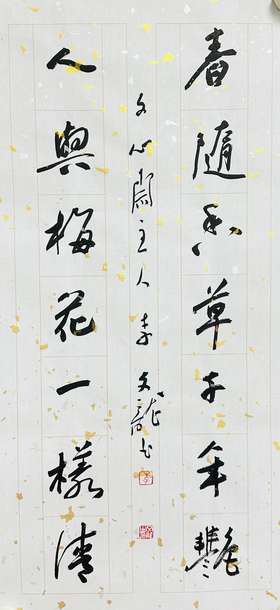 春随香草千年艷
人與梅花一樣清
文心閣主人李文龍書